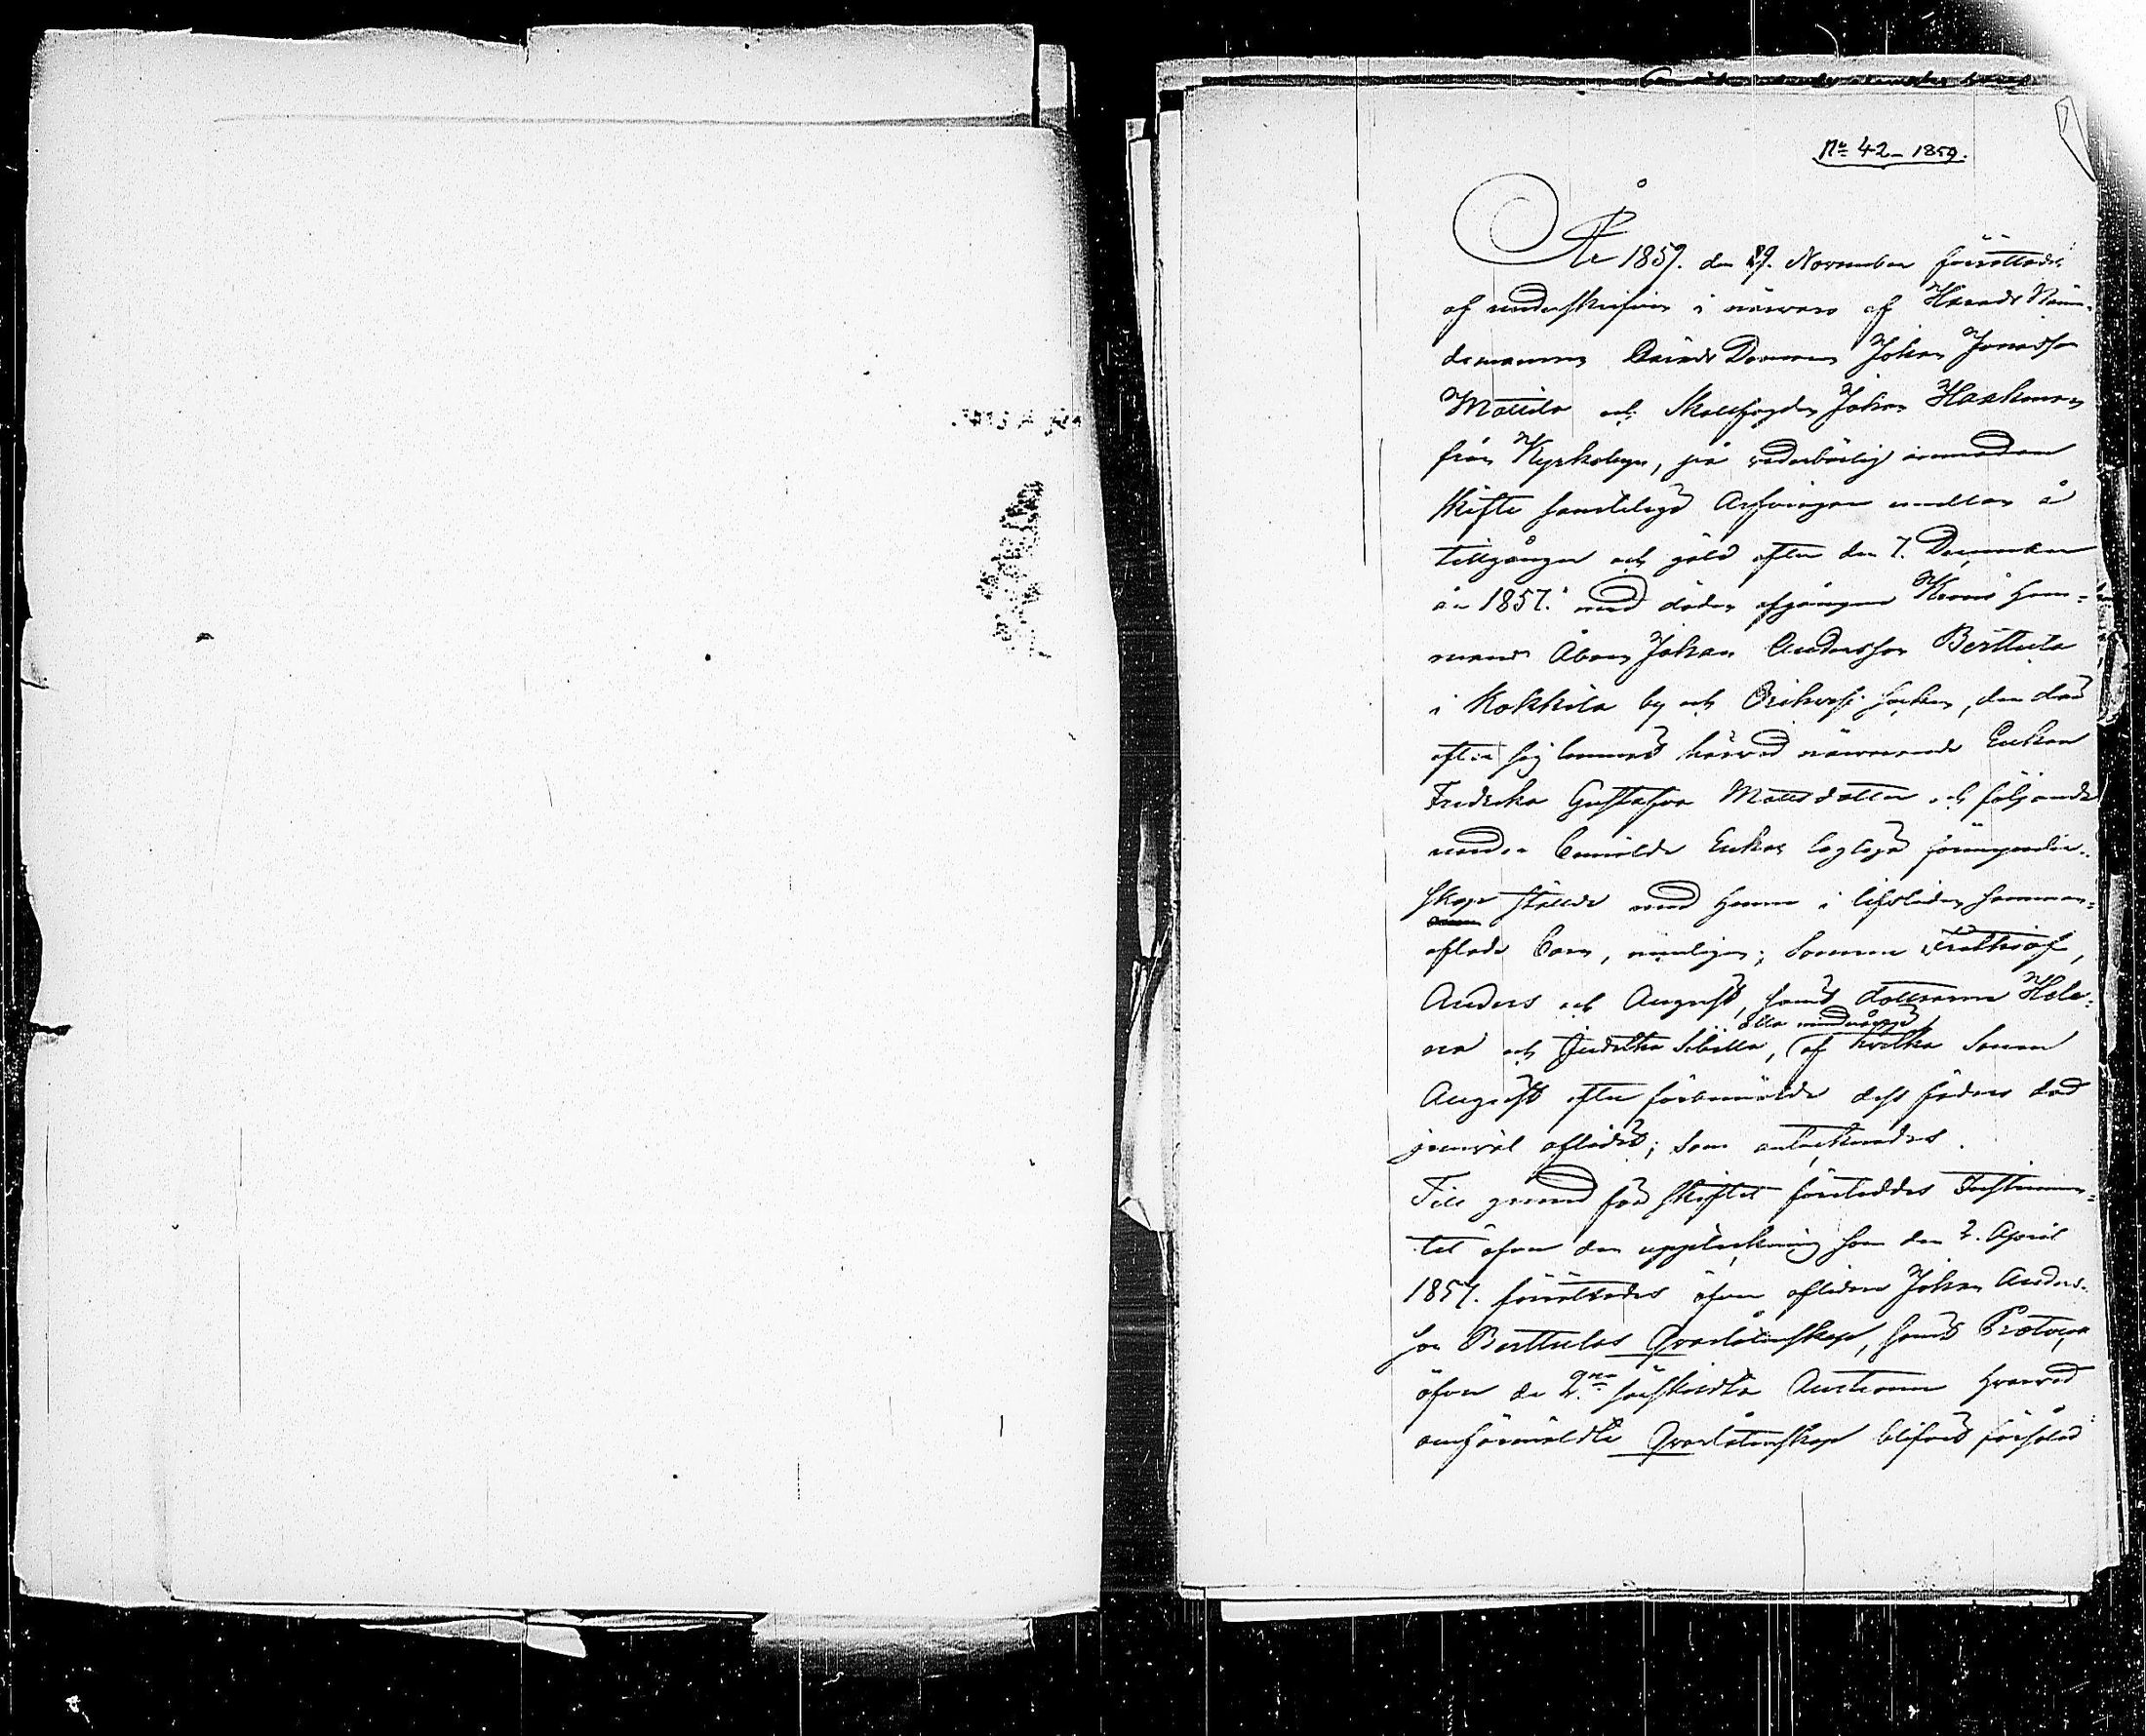 No 42 - 1859.
År 1859. den 29. November förrättades
af underskrifven i närvaro af Härads Näm-
demannen Johan Jonasson
Mattila och Skallfogden Johan Haahunen
från Kyrkobyn, på vederbörlig anmodan
skifte samteliga Arfvingar emellan å
tillgångar och gäld efter den 7. December
år 1857. med döden afgångne Krono Hem-
mans Åboen Johan Andersson Berttula
i Kokkila by och Orihvesi socken, den der
efter sig lemnat härvid närvarande Enkan
Fredrika Gustafva Mattsdotter och följande
under bemälde Enkas lagliga förmyndar-
skap stälde med honom i lifstiden samman-
aflade barn, nemligen; sönerne Frithiof,
Anders och August, samt döttrarne Hele-
alla minderåriga
na och Juditha Sibilla, af hvilka sonen
August efter förbemälde dess faders död
jemväl aflidit; som antecknades.
Till grund för skiftet företeddes Instrumen-
tet öfver den uppteckning som den 2. April
1857. förrättades öfver aflidne Johan Anders-
son Berttulas Qvarlåtenskap, samt Protocoll
öfver de 2ne särskildta Auctioner hvarvid
omförmäldte Qvarlåtenskap blifvit försåld